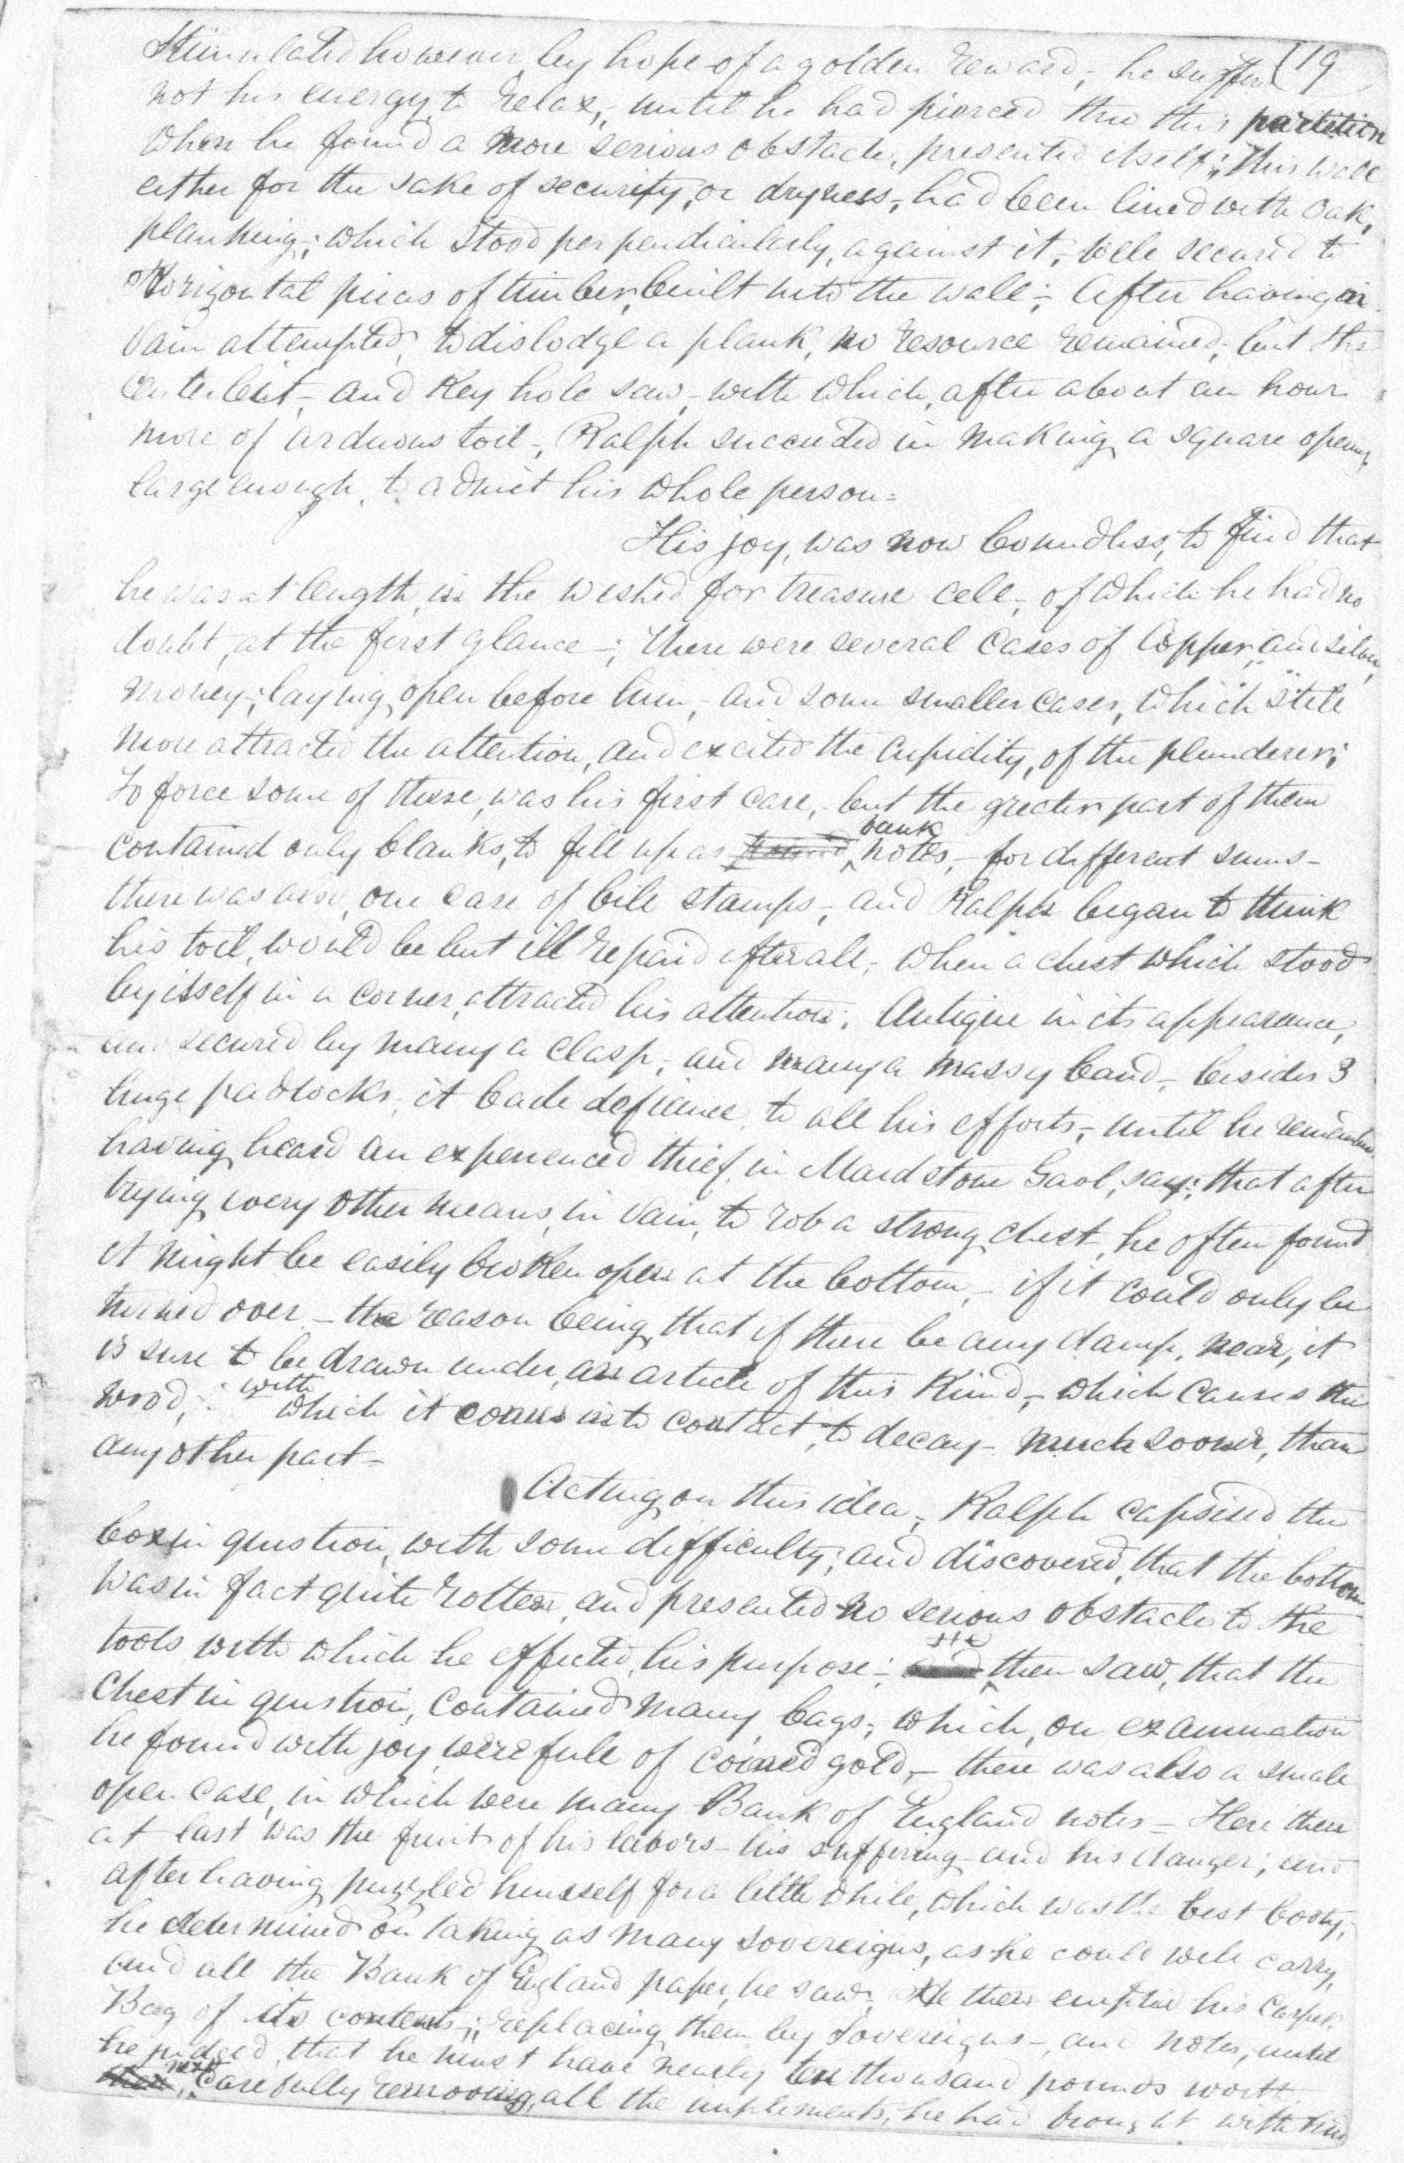 Stimulated however, by hope of a golden reward, he suffer (19
not his energy, to relax, until he had pierced thro this partition
When he found a more serious obstacle, presented itself; this wall
either for the sake of security, or dryness, had been lined with Oak,
planking; which stood perpendicularly, against it, well secured to
Horizontal pieces of timber, built into the wall; After having in
vain attempted, to dislodge a plank, no resource remained, but the
centerbit, and Key hole saw, with which, after about an hour
more of arduous toil, Ralph succeeded in making a square opening
large enough, to admit his whole person =
His joy, was now boundless, to find that
he was at length, in the wished for treasure cell, of which he had no
doubt, at the first glance -; there were several cases of Copper, and silver,
money; laying open before him, and some smaller cases, which still
more attracted the attention, and excited the cupidity, of the plunderer;
To force some of these, was his first care, but the greater part of them
contained only blanks, to fill up as bank notes, - for different sums -
there was also, one case of bill stamps, and Ralph began to think
his toil, would be but ill repaid after all, when a chest which stood
by itself in a corner, attracted his attention. Antique in its appearance,
and secured by many a clasp, and many a massy band, besides 3
huge padlocks, it bade defiance, to all his efforts, until he remembered
having heard an experienced thief, in Maidstone Gaol, say; that after
trying every other means, in vain, to rob a strong chest, he often found
it might be easily broken open at the bottom, - if it could only be
turned over - the reason being, that if there be any damp, near, it
is sure to be drawn under, an article of this kind, which causes the
wood, with which it comes into contact, to decay - much sooner, than
any other part -
Acting on this idea, Ralph capsised the
box in question, with some difficulty; and discovered, that the bottom
was in fact quite rotten, and presented no serious obstacle to the
tools with which he effected, his purpose; He then saw, that the
Chest in question, contained many bags; which, on examination
he found with joy, were full of coined gold, - there was also a small
open case, in which were many Bank of England notes - Here then
at last was the fruits of his labors - his suffering - and his danger; and
after having puzzled himself for a little while, which was the best booty,
he determined on taking as many sovereigns, as he could well carry,
and all the Bank of England paper, he saw; He then emptied his carpet
Bag of its contents; replacing them by Sovereigns -, and notes, until
he judged, that he must have nearly ten thousand pounds worth
next, Carefully removing, all the implements, he had brought with him